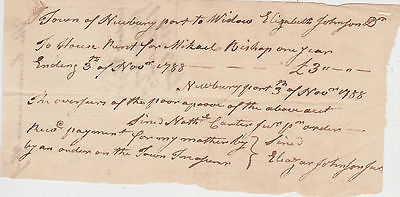 Town of Newbury port to Widow Elizabeth Johnson Dr
To House Rent for Mikael Bishop one year
Ending 3th of Novr 1788 — £3 " — " —
Newbury port 3th of Novr 1788
The overseers of the poor approve of the above acct
Sined Nathl Carter Jur pr order
Recd payment for my mother by } Sined
by an order on the Town Tresurer } Eleazar Johnson Jur